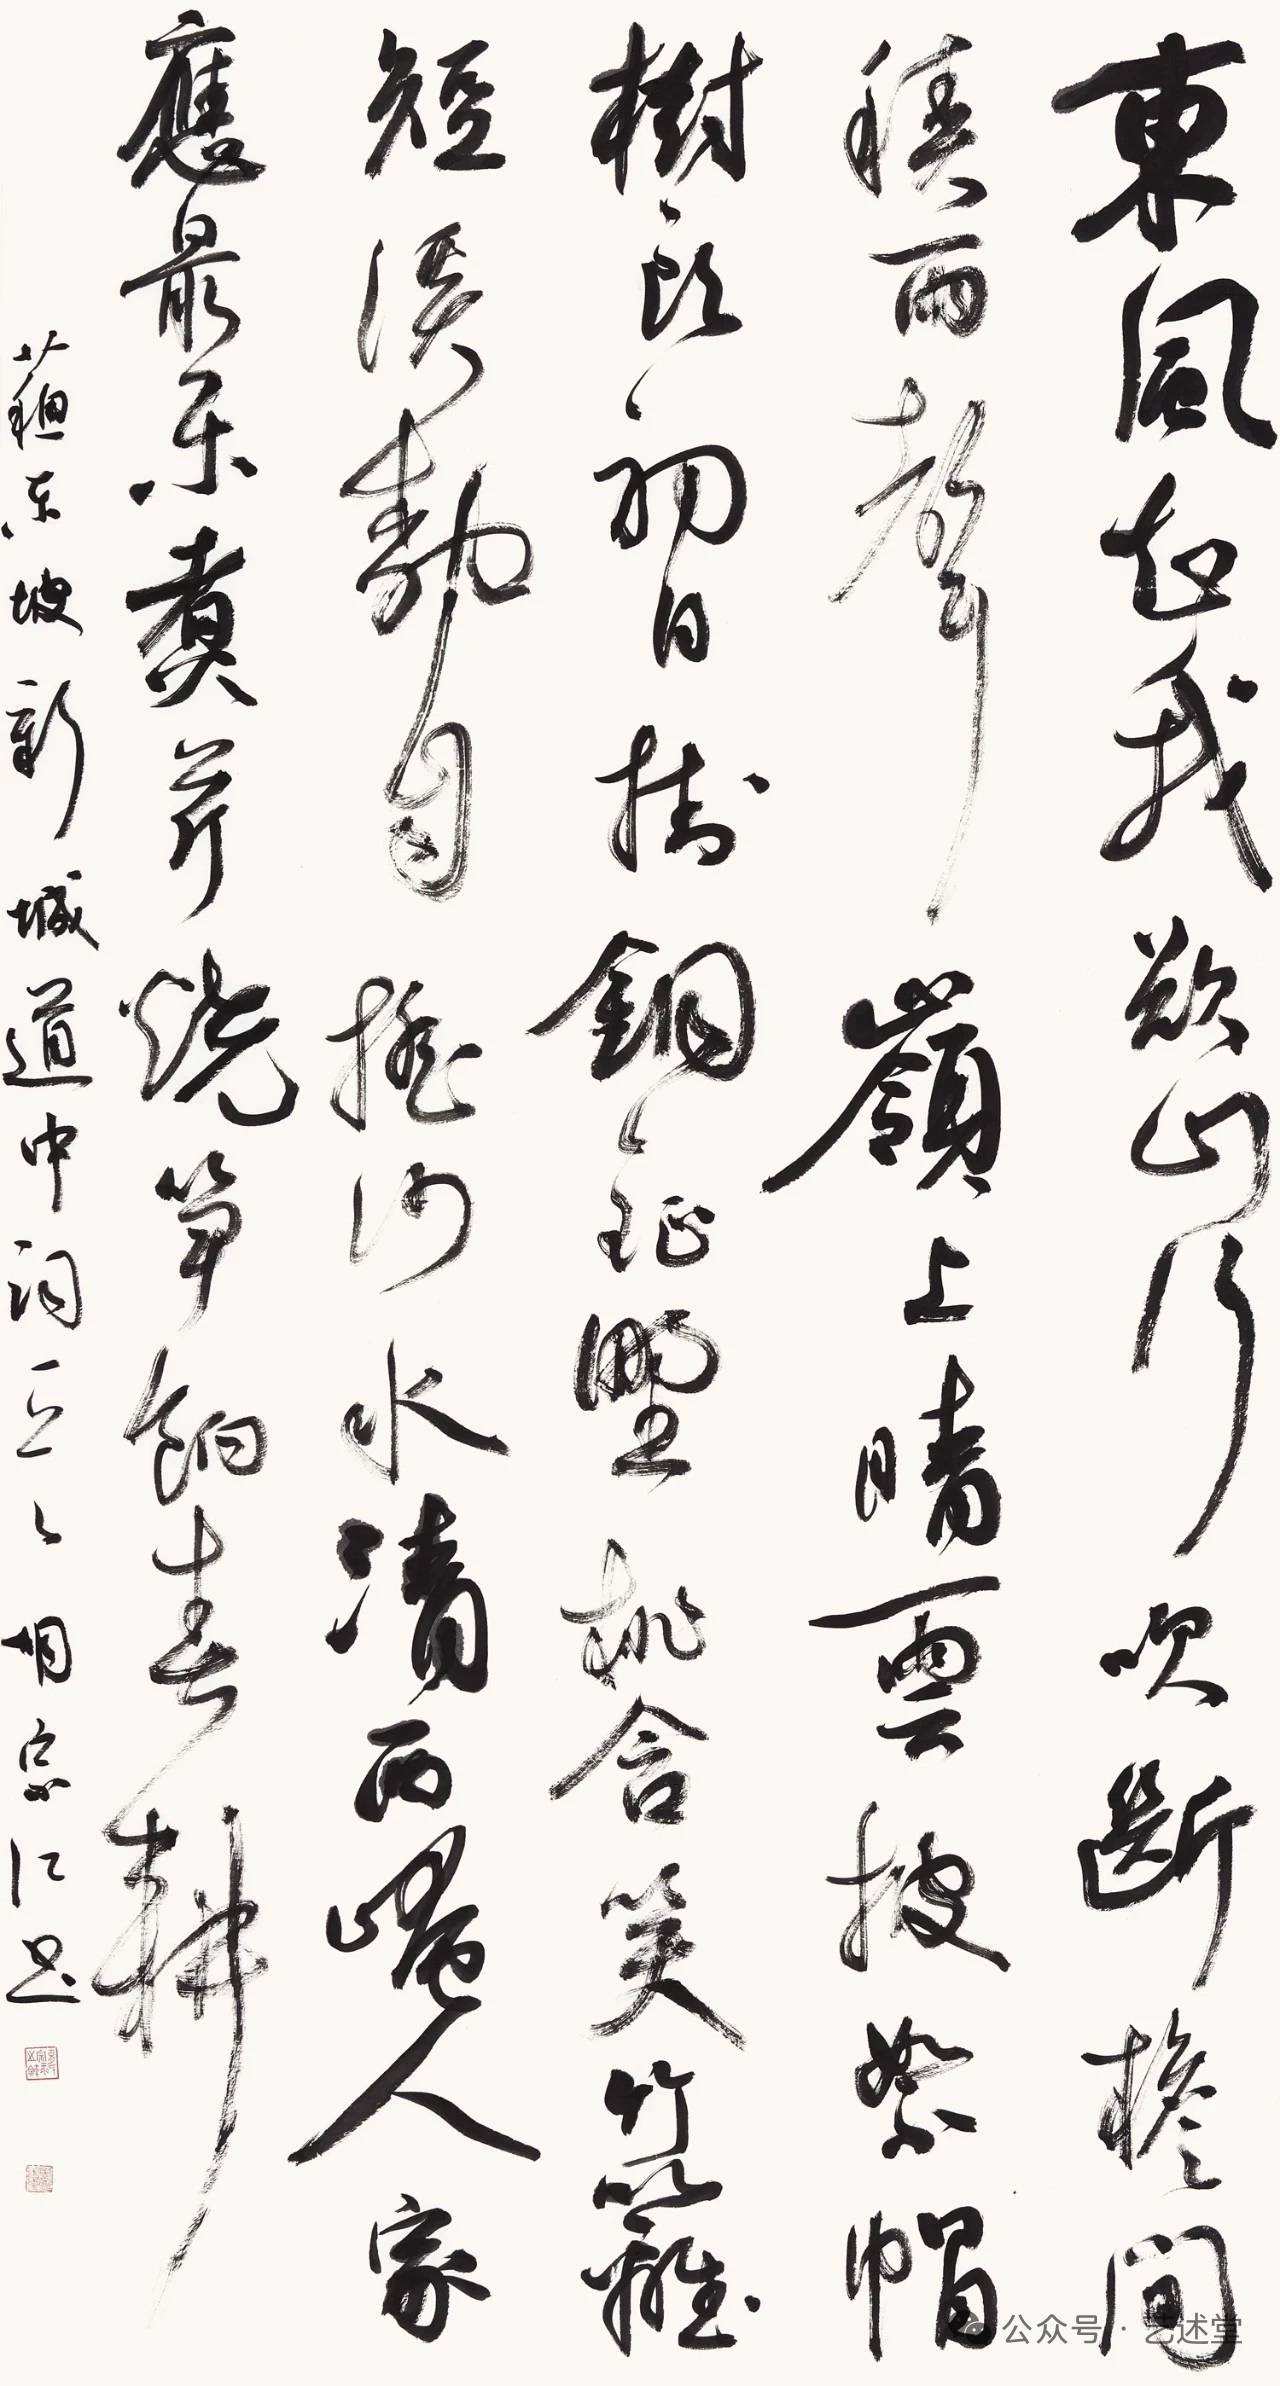 東風知我欲山行吹斷檐間
積雨聲嶺上晴雲披絮帽
樹頭初日掛銅鉦野桃含笑竹籬
短溪柳自搖沙水清西崦人家
應最乐煮芹燒笋餉春耕
蘇东坡新城道中詞 宗仁书
公众号·艺述堂